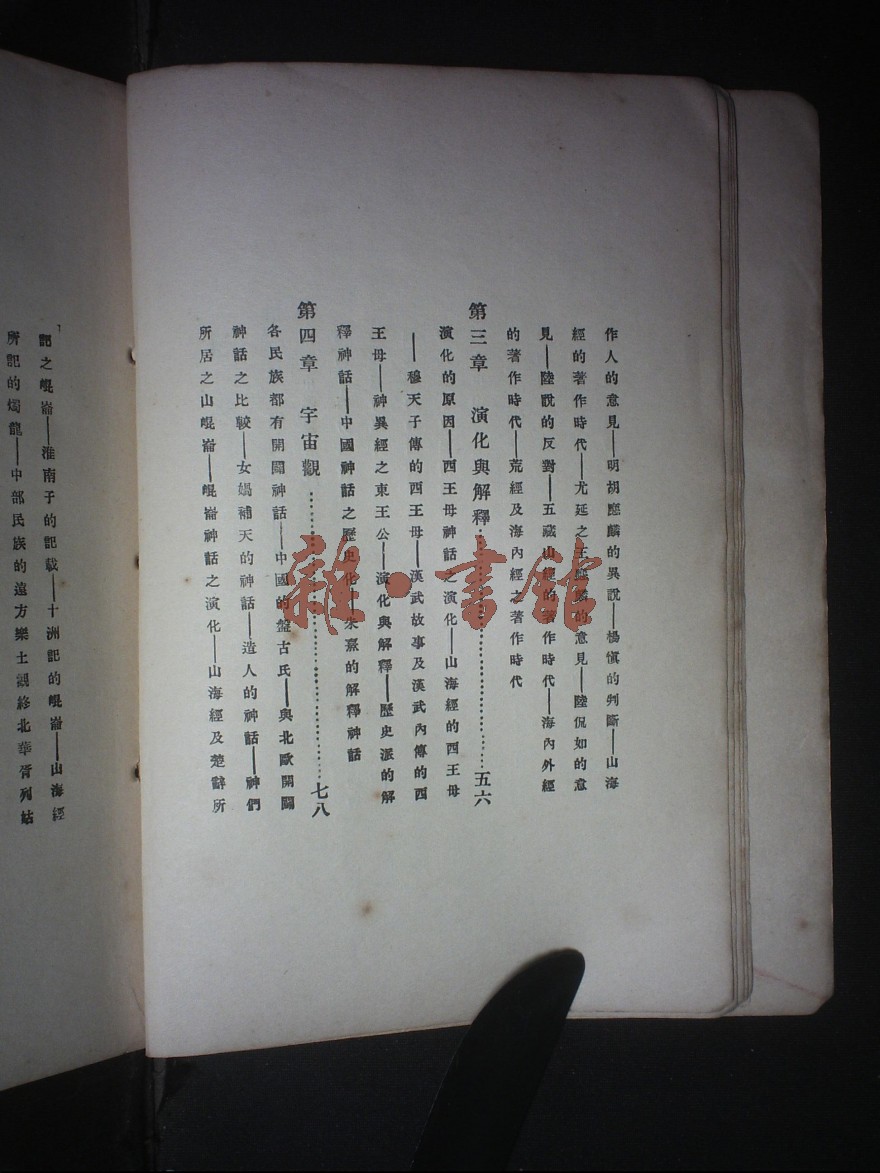 作人的意見——明胡應麟的異說——楊愼的判斷——山海
經的著作時代——尤延之王應麟的意見——陸侃如的意
見——陸說的反對——五藏山經的著作時代——海內外經
的著作時代——荒經及海內經之著作時代
第三章　演化與解釋……五六
演化的原因——西王母神話之演化——山海經的西王母
——穆天子傳的西王母——漢武故事及漢武內傳的西
王母——神異經之東王公——演化與解釋——歷史派的解
釋神話——中國神話之歷史化——朱熹的解釋神話
第四章　宇宙觀……七八
各民族都有開闢神話——中國的盤古氏——與北歐開闢
神話之比較——女媧補天的神話——造人的神話——神們
所居之山崐崙——崐崙神話之演化——山海經及楚辭所
記之崐崙——淮南子的記載——十洲記的崐崙——山海經
所記的燭龍——中部民族的遠方樂土觀終北華胥列姑
雜·書館